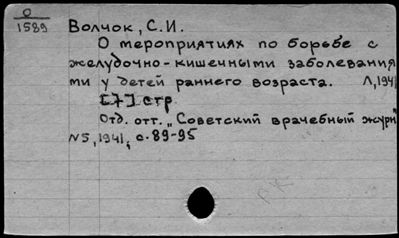 О
1589
Волчок, С.И.
О мероприятиях по борьбе с
желудочно-кишечными заболевания
ми у детей раннего возраста. Л, 194
[7] стр
Отд. отт. „Советский врачебный журн
№5, 1941, с. 89-95